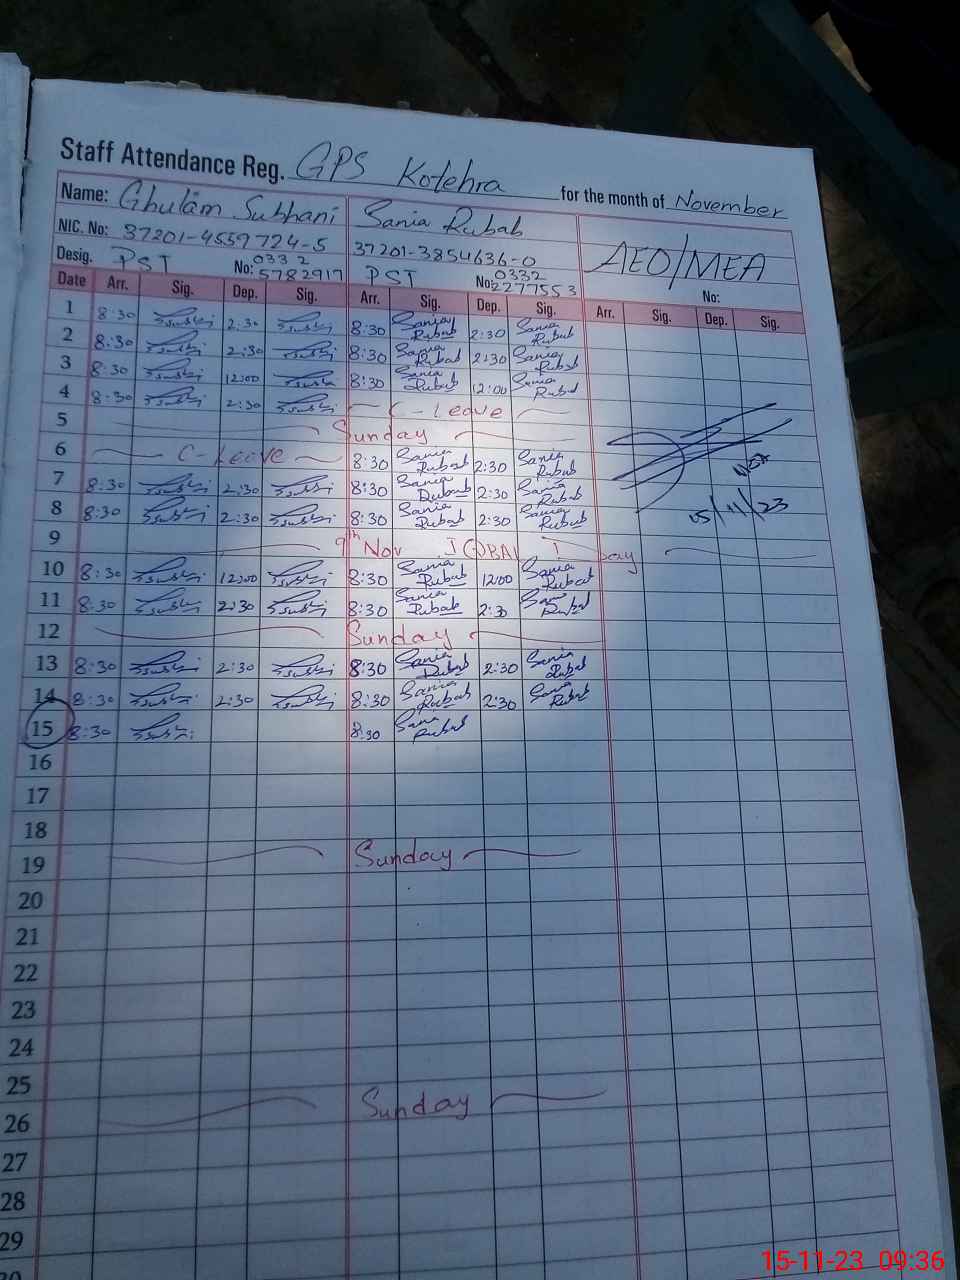 Staff Attendance Reg. GPS Kotehra for the month of November
Name: Ghulam Subhani Sania Rubab
NIC. No: 37201-4559724-5 37201-3854636-0 AEO/MEA
Desig. PST No: 0332 5782917 PST No: 0332 2277553 No:
Date Arr. Sig. Dep. Sig. Arr. Sig. Dep. Sig. Arr. Sig. Dep. Sig.
1 8:30 2:30 8:30 Sania Rubab 2:30 Sania Rubab
2 8:30 2:30 8:30 Sania Rubab 2:30 Sania Rubab
3 8:30 12:00 8:30 Sania Rubab 12:00 Sania Rubab
4 8:30 2:30 C-Leave
5 Sunday
6 C-Leave 8:30 Sania Rubab 2:30 Sania Rubab
7 8:30 2:30 8:30 Sania Rubab 2:30 Sania Rubab
8 8:30 2:30 8:30 Sania Rubab 2:30 Sania Rubab
15/11/23
9 9th Nov IQBAL Day
10 8:30 12:00 8:30 Sania Rubab 12:00 Sania Rubab
11 8:30 2:30 8:30 Sania Rubab 2:30 Sania Rubab
12 Sunday
13 8:30 2:30 8:30 Sania Rubab 2:30 Sania Rubab
14 8:30 2:30 8:30 Sania Rubab 2:30 Sania Rubab
15 8:30 8:30 Sania Rubab
16
17
18
19 Sunday
20
21
22
23
24
25
26 Sunday
27
28
29
30
15-11-23 09:36